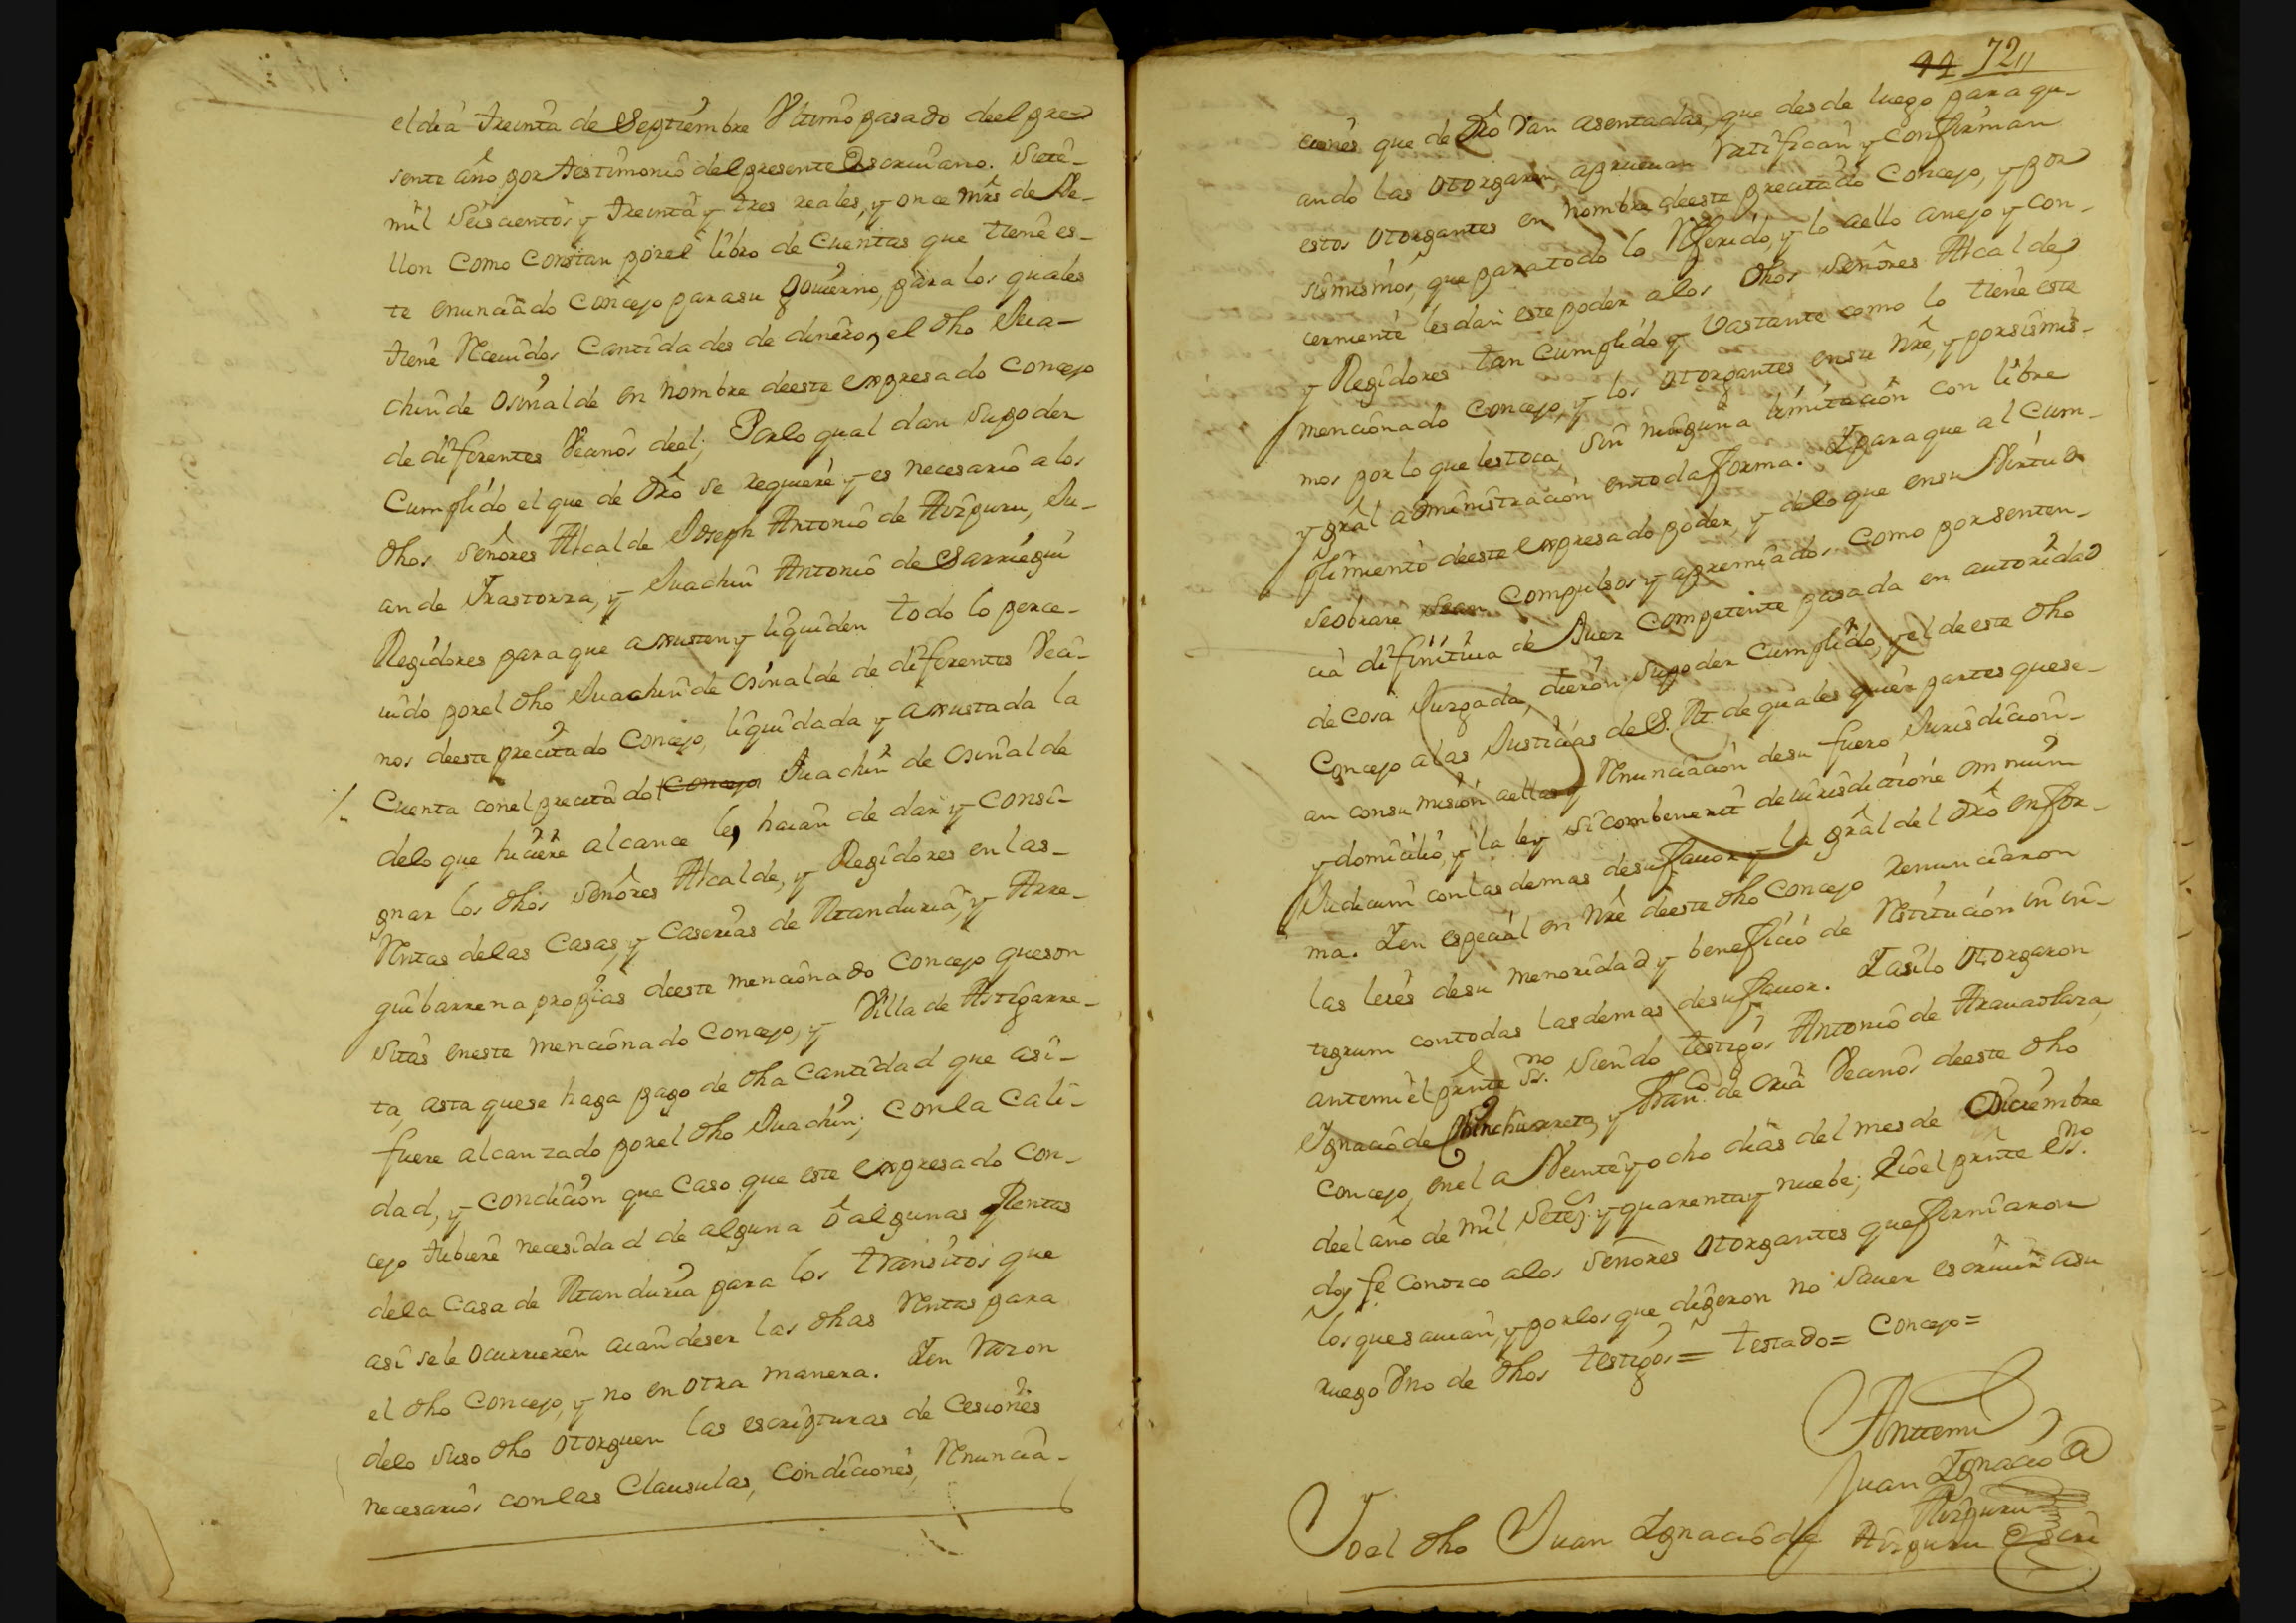 el dia treinta de Septiembre Ultimo pasado deel pre-
sente año por testimonio del presente Escriuano. Siete-
mil Seiscientos y treinta y tres reales, y once mrs de Ve-
llon como constan por el libro de Cuentas que tiene es-
te enunciado Concejo para su gouierno, para los quales
tiene Receuidos Cantidades de dinero, el dho Jua-
chin de Osinalde en nombre deeste expresado Concejo
de diferentes Vecinos deel; Por lo qual dan su poder
Cumplido el que de dro se requiere y es necesario a los
dhos Señores Alcalde Joseph Antonio de Aizpuru, Ju-
an de Irastorza, y Juachin Antonio de Sarriegui
Regidores para que axusten y liquiden todo lo perce-
uido por el dho Juachin de Osinalde de diferentes Veci-
nos deeste precitado Concejo, liquidada y axustada la
Cuenta con el precitado Concejo Juachin de Osinalde
de lo que hiciere alcance le haian de dar y Consi-
gnar los dhos Señores Alcalde, y Regidores en las-
Rentas de las Casas, y Caserias de Atanduria, y Arre-
guibarrena propias deeste mencionado Concejo que son
sitas en este mencionado Concejo, y Villa de Astigarre-
ta, asta que se haga pago de dha Cantidad que asi-
fuere alcanzado por el dho Juachin; Con la Cali-
dad, y condicion que Caso que este expresado Con-
cejo tubiere necesidad de alguna ô algunas Rentas
de la Casa de Atanduria para los transitos que
asi se le Ocurrieren aian de ser las dhas Rentas para
el dho Concejo, y no en otra manera. Y en razon
de lo suso dho otorguen las escripturas de Cesiones
necesarios con las Clausulas, Condiciones, Renuncia-
72
ciones que de dro van asentadas, que desde luego para qu-
ando las otorgaren, aprueuan ratifican y confirman
estos otorgantes en nombre deeste precitado Concejo, y por
si mismos, que para todo lo Referido, y lo aello anejo y con-
cerniente les dan este poder a los dhos Señores Alcalde
y Regidores tan Cumplido y Vastante como lo tiene este
mencionado Concejo, y los otorgantes en su nre, y por si mis-
mos por lo que les toca, sin ninguna limitacion con libre
y gral administracion en toda forma. Y para que al Cum-
plimiento deeste expresado poder, y de lo que en su Virtud
se obrare sean Compulsos y apremiados. Como por senten-
cia difinitiua de Juez Competente pasada en autoridad
de cosa Juzgada, dieron su poder Cumplido, y el de este dho
Concejo a las Justicias de S. M. de quales quier partes que se-
an con su mision aellas y Renunciacion de su fuero Jurisdicion-
y domicilio, y la ley si combenerit de iurisdictione omnium
Judicum con las demas de su fauor y la gral del dro en for-
ma. Y en especial en nre deeste dho Concejo renunciaron
las leies de su menoridad y beneficio de Restitucion in in-
tegrum con todas las demas de su fauor. Y asi lo otorgaron
ante mi el prnte Ss.no Siendo testigos Antonio de Arauaolaza,
Ygnacio de Chinchurreta, y Fran.co de Oria Vecinos deeste dho
Concejo, en el a Veinte y ocho dias del mes de Diciembre
deel año de mil Sets. y quarenta y nuebe; E io el prnte Es.no
doy fe Conozco a los Señores otorgantes que firmaron
los que sauian, y por los que digeron no Sauer escriuir a su
ruego Vno de dhos testigos = testado = Concejo =
Ante mi
Juan Ygnacio de
Aizpuru
Yo el dho Juan Ygnacio de Aizpuru Escri